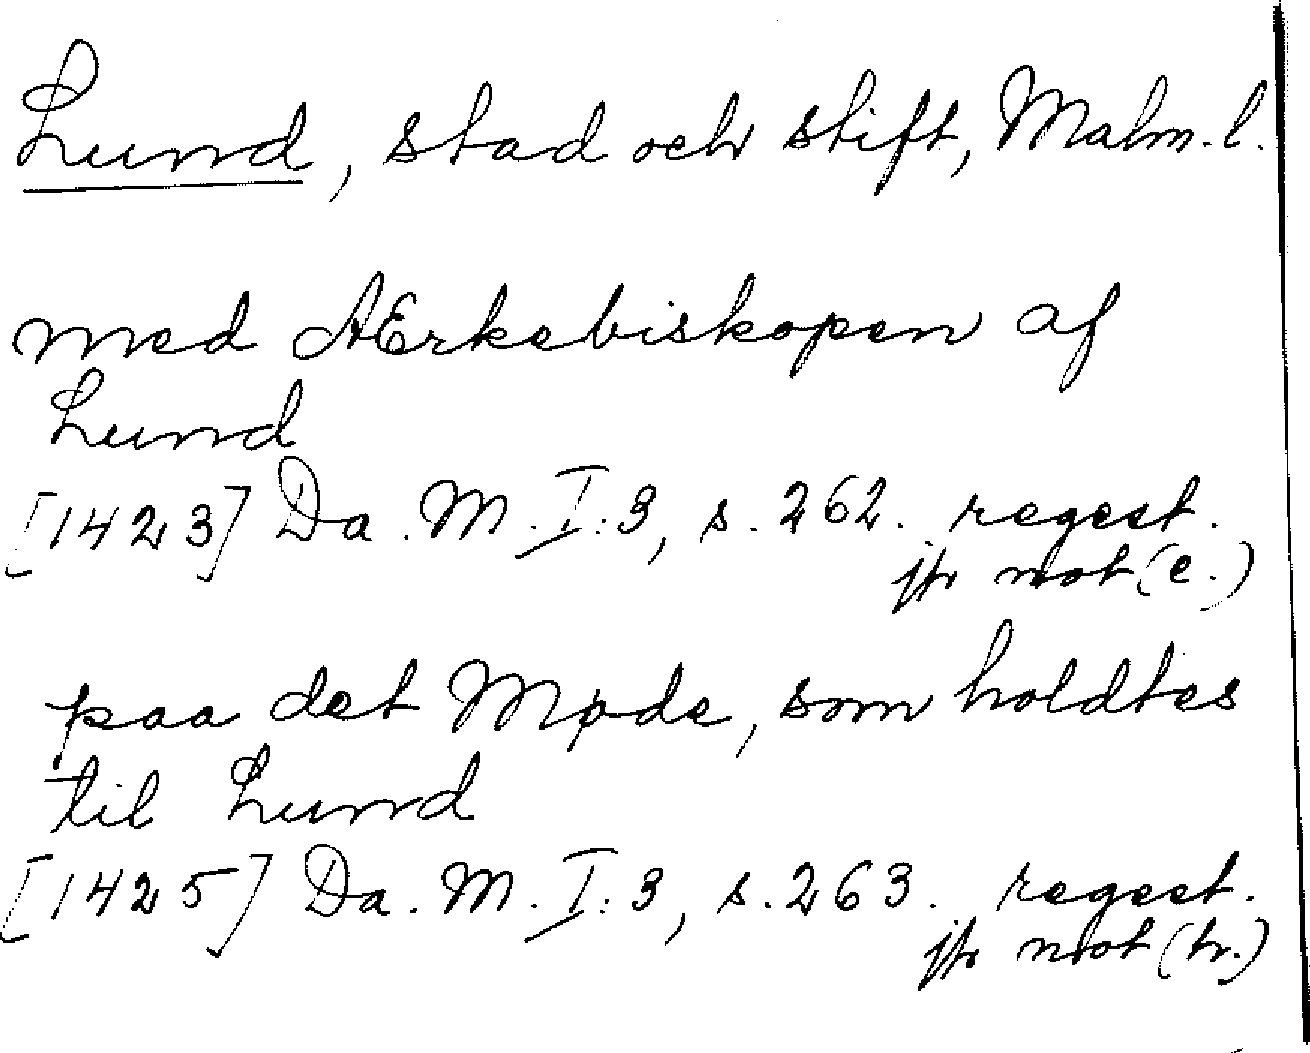 Lund, stad och stift, Malm. l.
med AErkebiskopen af
Lund
[1423] Da. M. I:3, s. 262. regest.
jfr not (e.)
paa det Møde, som holdtes
til Lund
[1425] Da. M. I:3, s. 263. regest.
jfr not (h.)